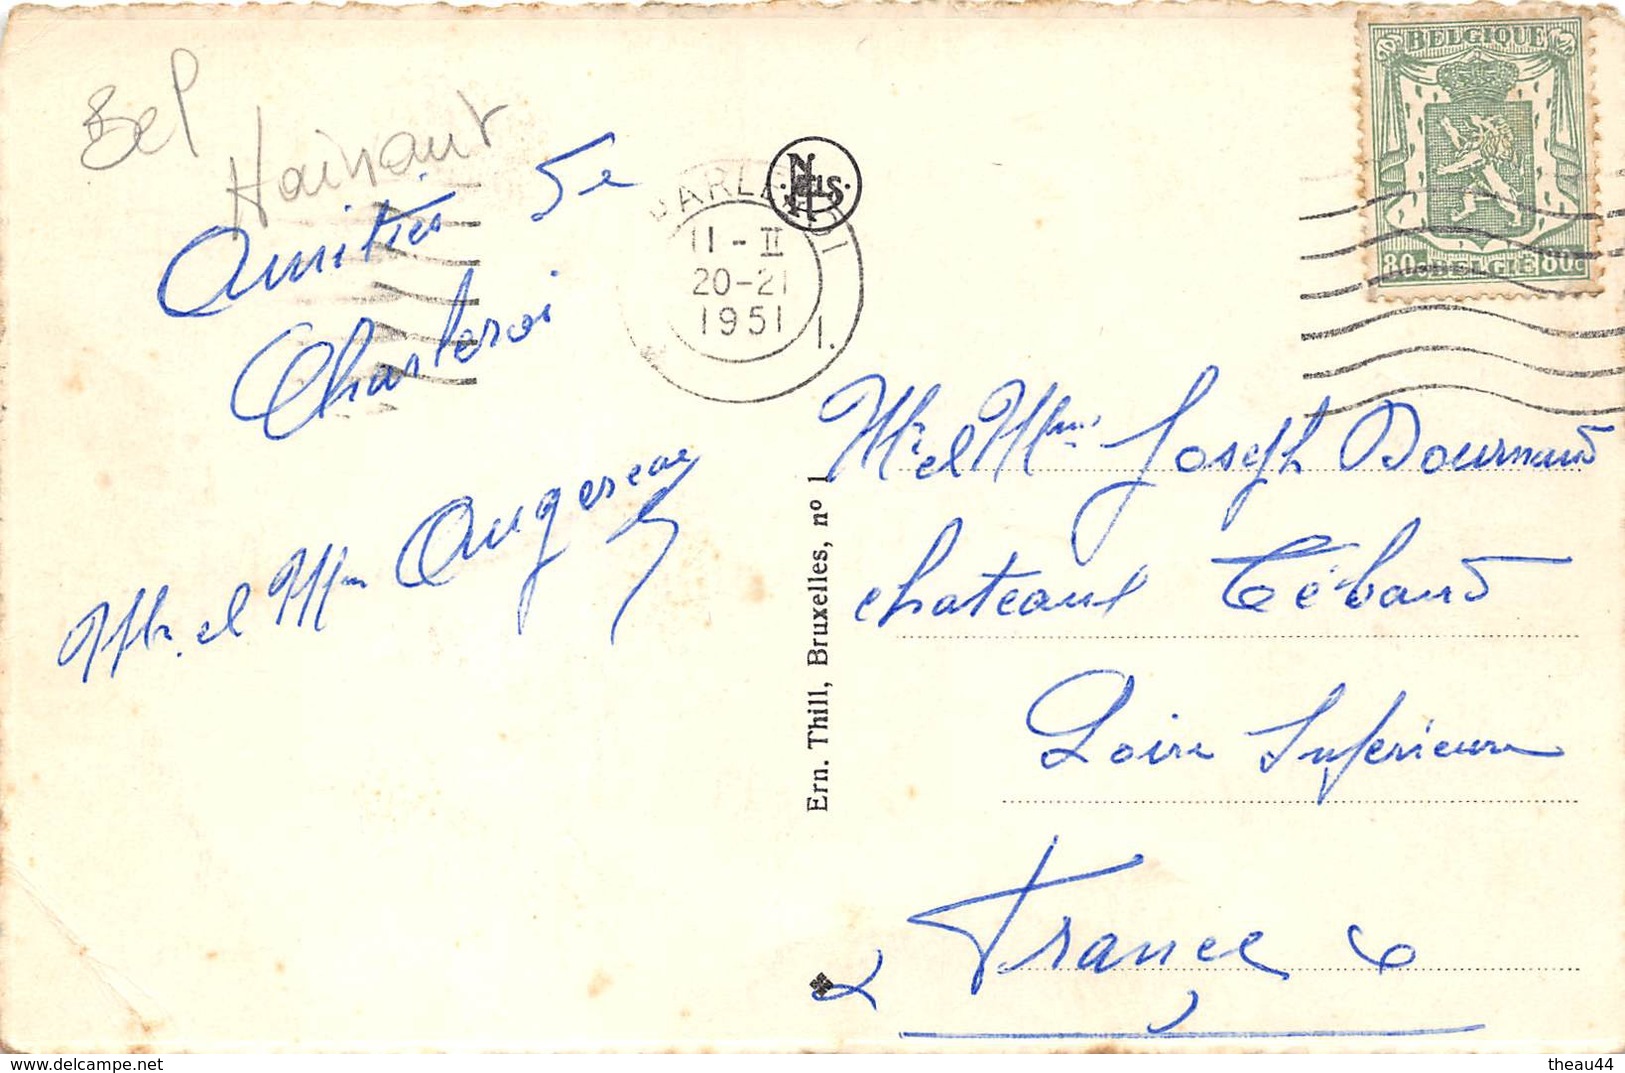 Bel
Hainaut
Amitiés de
Charleroi
Mr. et Mme Augereau
CHARLEROI
1.
11-II
20-21
1951
NELS
BELGIQUE
80c BELGIE 80c
Ern. Thill, Bruxelles, nº 1
Mr et Mme Joseph Dournaud
chateau Tébaud
Loire Inférieure
France
theau44